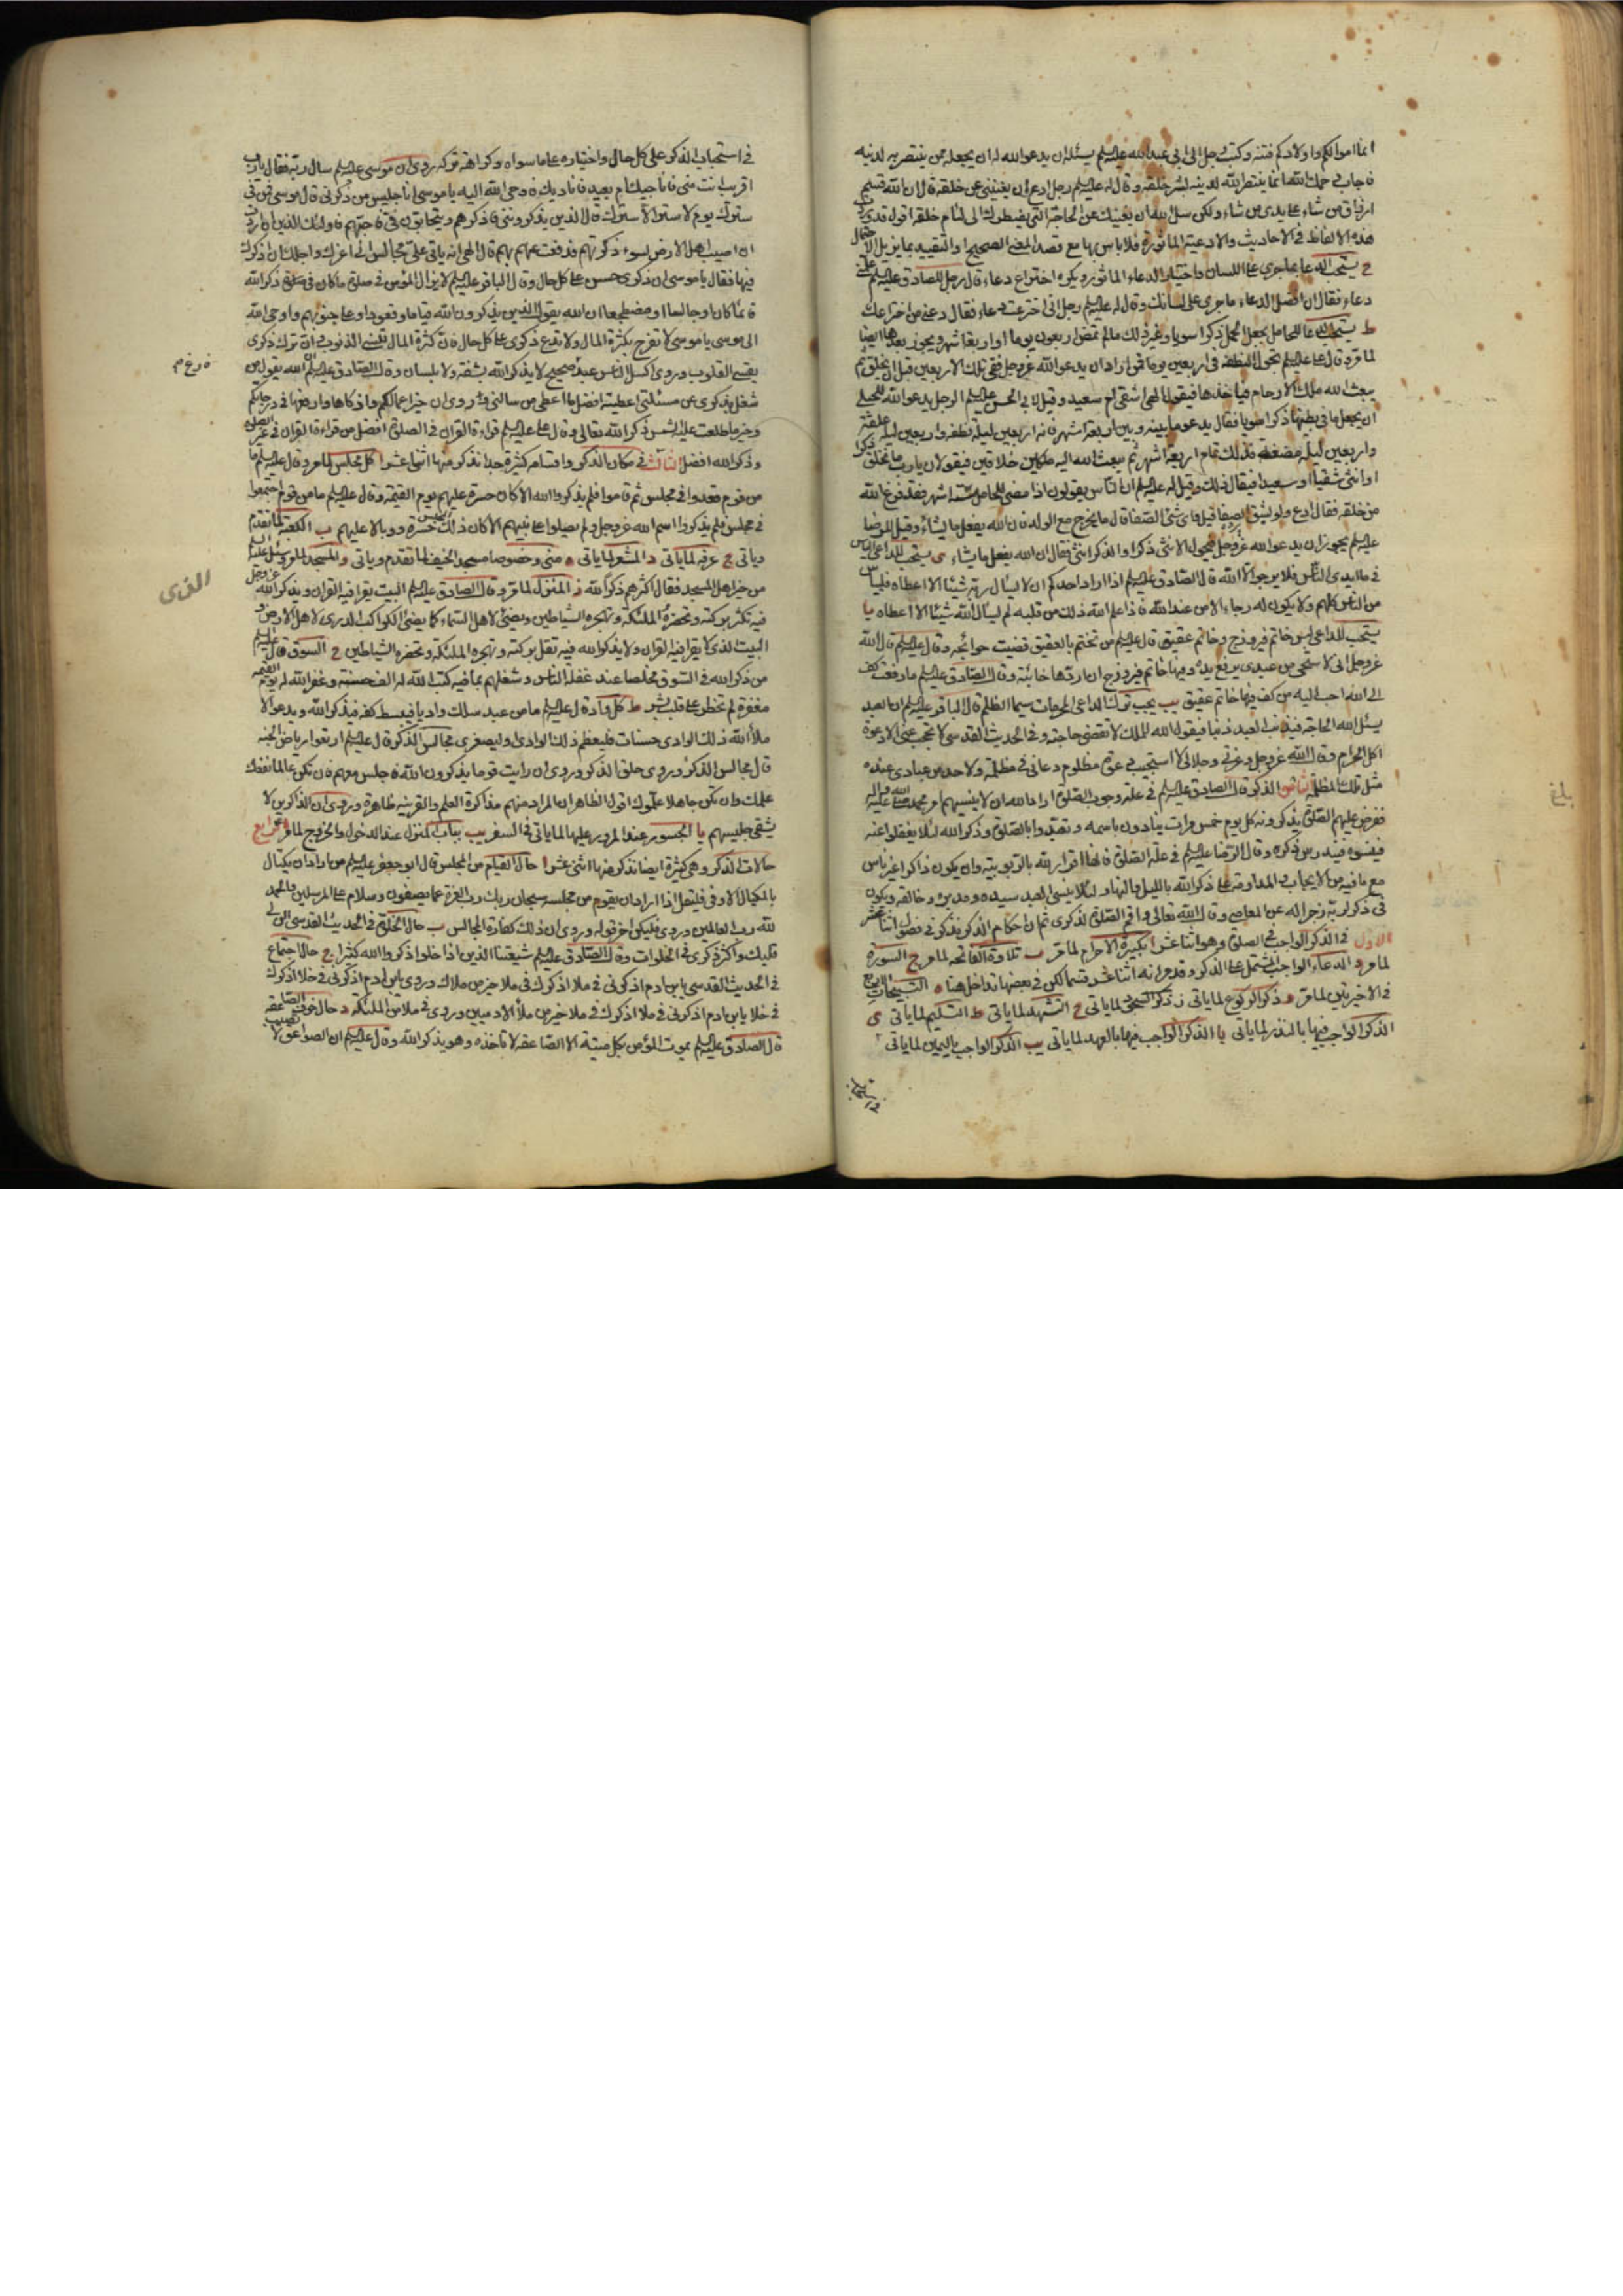 انما اموالكم واولادكم فتنه وكتب رجل الى ابي عبدالله عليه السلم يسئله ان يدعو الله له ان يجعله ممن ينتصر به لدينه
فاجاب رحمك الله انما ينتصر الله لدينه بشر خلقه وقال له عليه السلم رجل ادع الله ان يغنيني عن خلقه قال ان الله قسم
ارزاق من شاء على يدى من شاء ولكن سل الله ان يغنيك عن الحاجة التي يضطرك الى لئام خلقه اقول قد
هذه الالفاظ في الاحاديث والادعية الماثورة فلا باس بها مع قصد المعنى الصحيح او التقييد بما يزيل الاحتمال
ح يستحب الدعا بما جرى على اللسان واختيار الدعاء الماثور ويكره اختراع دعاء قال رجل للصادق عليه السلم علمني
دعاء فقال ان افضل الدعاء ما جرى على لسانك وقال له عليه السلم رجل انى اخترعت دعاء فقال دعنى من اختراعك
ط يستحب الدعا للحامل بجعل الحمل ذكرا سويا وغير ذلك ما لم تمض اربعون يوما او اربعة اشهر ويجوز بعدها ايضا
لما مر وقال عليه السلم تحول النطفه في اربعين يوما فمن اراد ان يدعو الله عز وجل ففي تلك الاربعين قبل ان يخلق ثم
يبعث الله ملك الارحام فياخذها فيقول الهى اشقى ام سعيد وقيل لابي الحسن عليه السلم الرجل يدعو الله للحبلى
ان يجعل ما في بطنها ذكرا سويا فقال يدعو ما بينه وبين اربعة اشهر فانه اربعين ليلة نطفه واربعين ليله علقه
واربعين ليله مضغة فذلك تمام اربعة اشهر ثم يبعث الله اليه ملكين خلاقين فيقولان يا رب ما تخلق ذكرا
او انثى شقيا او سعيدا فيقال ذلك وقيل له عليه السلم ان الناس يقولون اذا مضى للحامل ستة اشهر فقد فرغ الله
من خلقه فقال ادع ولو بشق الصفا قيل واى شئ الصفا قال ما يخرج مع الولد فان الله يفعل ما يشاء وقيل للرضا
عليه السلم يجوز ان يدعو الله عز وجل فيحول الانثى ذكرا والذكر انثى فقال ان الله يفعل ما يشاء ى يستحب للداعى الياس
مما في ايدى الناس فلا يرجو الا الله قال الصادق عليه السلم اذا اراد احدكم ان لا يسال ربه شيئا الا اعطاه فليياس
من الناس كلهم ولا يكون له رجاء الا من عند الله فاذا علم الله ذلك من قلبه لم يسال الله شيئا الا اعطاه يا
يستحب للداعى لبس خاتم فيروزج وخاتم عقيق قال عليه السلم من تختم بالعقيق قضيت حوائجه وقال عليه السلم قال الله
عز وجل انى لاستحى من عبدى يرفع يده وفيها خاتم فيروزج ان اردها خائبة وقال الصادق عليه السلم ما رفعت كف
الى الله احب اليه من كف فيها خاتم عقيق يب يجب ترك الداعى المحرمات سيما الظلم قال الباقر عليه السلم ان العبد
يسئل الله الحاجة فيذنب العبد ذنبا فيقول الله للملك لا تقضى حاجته وفي الحديث القدسى لا تحجب عنى الا دعوة
اكل الحرام وقال الله عز وجل وعزتي وجلالي لا استجيب دعوة مظلوم دعاني في مظلمة ولاحد من عبادى عنده
مثل تلك المظلمة الثانى الذكر قال الصادق عليه السلم في علة وجوب الصلوة اراد الله ان لا ينسيهم امر محمد صلى الله عليه واله
ففرض عليهم الصلوة يذكرونه كل يوم خمس مرات ينادون باسمه وتعبدوا بالصلوة وذكر الله لئلا يغفلوا عنه
فينسوه فيندرس ذكره وقال الرضا عليه السلم في علة الصلوة انها اقرار لله بالربوبية وان يكون ذاكرا غير ناس
مع ما فيه من الايجاب والمداومة على ذكر الله بالليل والنهار لئلا ينسى العبد سيده ومدبره وخالقه ويكون
في ذكر ربه زجرا له عن المعاصى وقال الله تعالى واقم الصلوة لذكرى ثم ان احكام الذكر نذكر في فصول اثنا عشر
الاول في الذكر الواجب في الصلوة وهو اثنا عشر ا تكبيرة الاحرام لما مر ب تلاوة الفاتحة لما مر ج السورة
لما مر د الدعاء الواجب المشتمل على الذكر وقد مر انه اثنا عشر قسما لكن في بعضها تداخل هنا ه التسبيحات الاربع
في الاخيرتين لما مر و ذكر الركوع لما ياتي ز ذكر السجود لما ياتي ح التشهد لما ياتي ط التسليم لما ياتي ى
الذكر الواجب فيها بالنذر لما ياتي يا الذكر الواجب فيها بالعهد لما ياتي يب الذكر الواجب باليمين لما ياتي
بلغ
في استحباب الذكر على كل حال واختياره على ما سواه وكراهة تركه روى ان موسى عليه السلم سال ربه فقال يا رب
اقريب انت منى فاناجيك ام بعيد فاناديك فاوحى الله اليه يا موسى انا جليس من ذكرنى قال موسى فمن في
سترك يوم لا ستر الا سترك قال الذين يذكروننى فاذكرهم ويتحابون في فاحبهم فاولئك الذين اذا اردت
ان اصيب اهل الارض بسوء ذكرتهم فدفعت عنهم بهم قال الهى انه ياتى على مجالس انى اعزك واجلك ان اذكرك
فيها فقال يا موسى ان ذكرى حسن على كل حال وقال الباقر عليه السلم لا يزال المؤمن في صلوة ما كان في ذكر الله
قائما كان او جالسا او مضطجعا ان الله يقول الذين يذكرون الله قياما وقعودا وعلى جنوبهم واوحى الله
الى موسى يا موسى لا تفرح بكثرة المال ولا تدع ذكرى على كل حال فان كثرة المال تنسى الذنوب وان ترك ذكرى
يقسى القلوب وروى اكسل الناس عبد صحيح لا يذكر الله بشفة ولا بلسان وقال الصادق عليه السلم ان الله يقول من
شغل بذكرى عن مسئلتى اعطيته افضل ما اعطى من سالنى وروى ان خير اعمالكم وازكاها وارفعها في درجاتكم
وخير ما طلعت عليه الشمس ذكر الله تعالى وقال عليه السلم قراءة القران في الصلوة افضل من قراءة القران في غير الصلوة
وذكر الله افضل الثالث في مكان الذكر واقسامه كثيرة جدا نذكر منها اثنى عشر ا كل مجلس لما مر وقال عليه السلم ما
من قوم قعدوا في مجلس ثم قاموا فلم يذكروا الله الا كان حسرة عليهم يوم القيمة وقال عليه السلم ما من قوم اجتمعوا
في مجلس فلم يذكروا اسم الله عز وجل ولم يصلوا على نبيهم الا كان ذلك المجلس حسرة ووبالا عليهم ب الكعبة لما تقدم
وياتي ج عرفه لما ياتي د المشعر لما ياتي ه منى وخصوصا مسجد الخيف لما تقدم وياتي و المسجد لما مر وسئل عليه السلم
من خير اهل المسجد فقال اكثرهم ذكرا لله ز المنزل لما مر وقال الصادق عليه السلم البيت يقرا فيه القران ويذكر الله عز وجل
فيه تكثر بركته وتحضره الملئكة وتهجره الشياطين ويضئ لاهل السماء كما يضئ الكواكب الدرى لاهل الارض و
البيت الذى لا يقرا فيه القران ولا يذكر الله فيه تقل بركته وتهجره الملئكة وتحضره الشياطين ح السوق قال عليه السلم
من ذكر الله في السوق مخلصا عند غفلة الناس وشغلهم بما فيه كتب الله له الف حسنة وغفر الله له يوم القيمه
مغفرة لم تخطر على قلب بشر ط كل واد قال عليه السلم ما من عبد سلك واديا فيبسط كفه فيذكر الله ويدعو الا
ملأ الله ذلك الوادى حسنات فليعظم ذلك الوادى او ليصغر ى مجالس الذكر قال عليه السلم ارتعوا رياض الجنة
قال مجالس الذكر وروى حلق الذكر وروى ان رايت قوما يذكرون الله فاجلس معهم فان تكن عالما نفعك
علمك وان تكن جاهلا علموك اقول الظاهر ان المراد منهم مذاكرة العلم والقرينة ظاهرة وروى ان الذاكرين لا
يشقى جليسهم يا الجسور عند المرور عليها لما ياتي في السفر يب باب المنزل عند الدخول والخروج لما مر الرابع
حالات الذكر وهى كثيرة ايضا نذكر منها اثنى عشر ا حال القيام من المجلس قال ابو جعفر عليه السلم من اراد ان يكتال
بالمكيال الاوفى فليقل اذا اراد ان يقوم من مجلسه سبحان ربك رب العزة عما يصفون وسلام على المرسلين والحمد
لله رب العالمين وروى فليكن اخر قوله وروى ان ذلك كفارة المجالس ب حال الخلوة في الحديث القدسى الن لى
قلبك واكثر ذكرى في الخلوات وقال الصادق عليه السلم شيعتنا الذين اذا خلوا ذكروا الله كثيرا ج حال اجتماع
في الحديث القدسى يا بن ادم اذكرنى في ملا اذكرك في ملا خير من ملاك وروى يا بن ادم اذكرنى في خلا اذكرك
في خلا يا بن ادم اذكرنى في ملا اذكرك في ملا خير من ملأ الادميين وروى في ملا من الملئكة د حال خوف الصاعقه
قال الصادق عليه السلم يموت المؤمن بكل ميتة الا الصاعقه لا تاخذه وهو يذكر الله وقال عليه السلم ان الصواعق لا تصيب